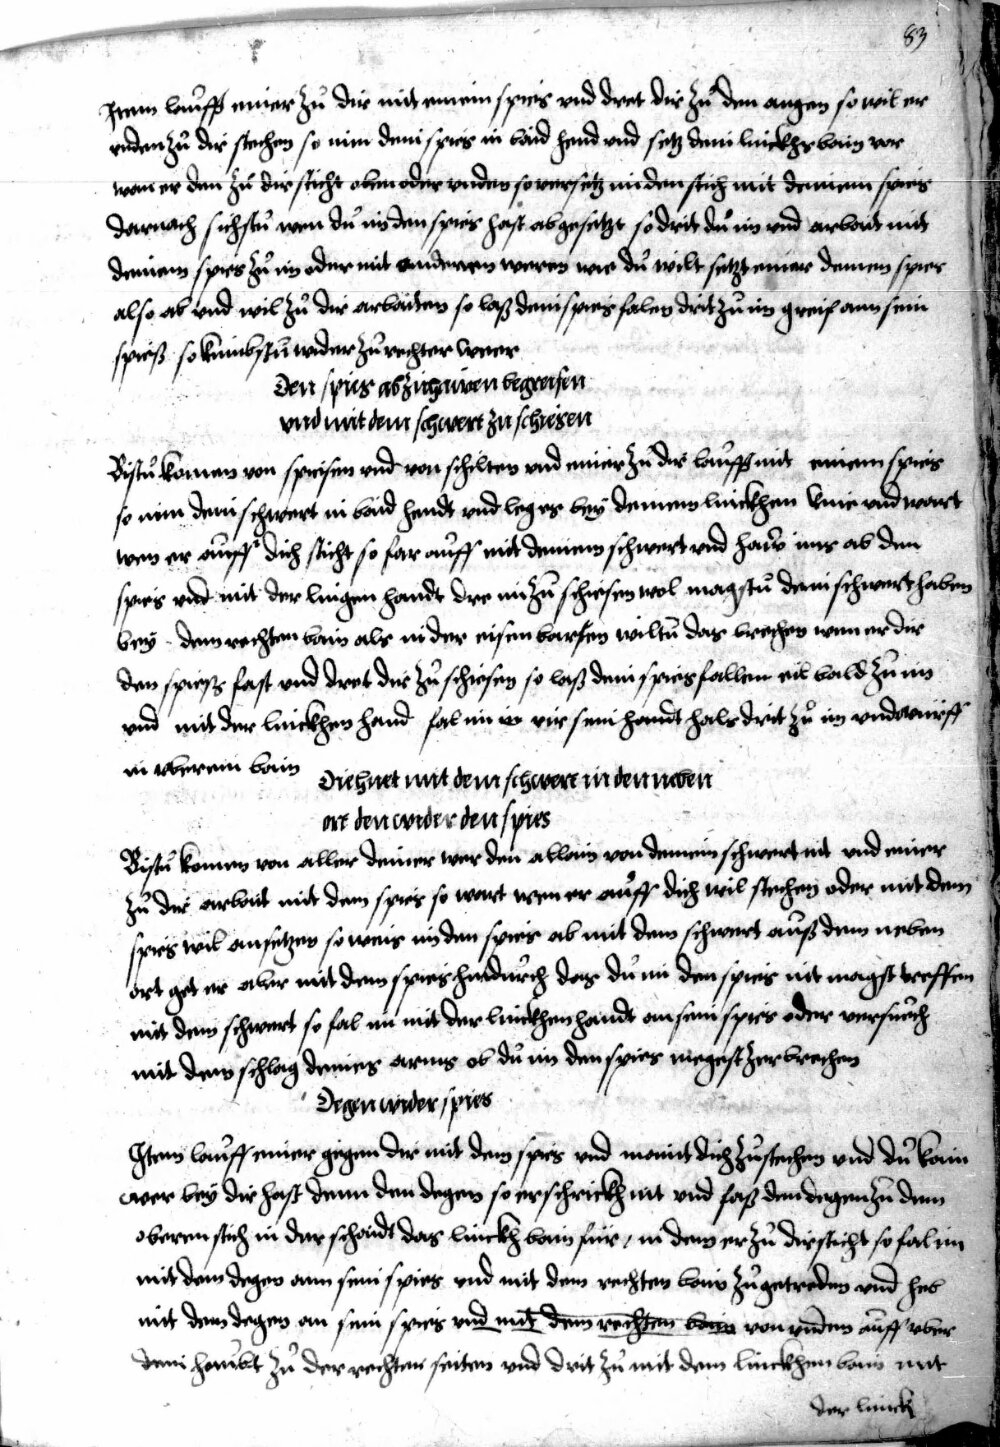 83
Item lauff einer zu dir mit einem spies und dret dir zu den augen so wil er
unden zu dir stechen so nim dein spies in baid hend und setz dein linckhs bain vor
wan er den zu dir sticht oben oder unden so versetz im den stich mit deinem spies
darnach sichstu wen du im den spies hast abgesetzt so drit du im und arbait mit
deinem spies zu im oder mit anderen weren wie du wilt setzt einer deinem spies
also ab und wil zu dir arbaiten so laß dein spies falen drit zu im greif ann sein
spieß so kumbstu wider zu rechter weer
Den spies abzuhauen begreifen
und mit dem schwert zu schiesen
Bistu komen von spiesen und von schilten und einer zu dir laufft mit einem spies
so nim dein schwert in baid hendt und leg es bey deinem linckhen knie und wart
wen er auff dich sticht so far auff mit deinem schwert und haw ims ab den
spies und mit der lingen handt dre im zu schiesen wol magstu dein schwert haben
bey dem rechten bain als in der eisen pforten wiltu das brechen wen er dir
den spiess fast und dret dir zu schiesen so laß dein spies fallen eil bald zu im
und mit der linckhen hand fal im in vir sein handt hals drit zu im und wirff
in uber ein bain
Die huet mit dem schwert in dem neben
ort den wider den spies
Bistu komen von aller deiner wer den allain von deinem schwert nit und einer
zu dir arbait mit dem spies so wart wen er auff dich wil stechen oder mit dem
spies wil ansetzen so weis im den spies ab mit dem schwert auß dem neben
ort get er aber mit dem spies hindurch das du im den spies nit magst treffen
mit dem schwert so fal im mit der linckhen handt an sein spies oder versuech
mit dem schlag deines arms ob du im den spies megest zerbrechen
Degen wider spies
Item lauff einer gegen dir mit dem spies und maint dich zu stechen und du kain
wer bey dir hast denn den degen so erschrickh nit und faß den degen zu dem
oberen stich in der schaidt das linckh bain für / in dem er zu dir sticht so fal im
mit dem degen ann sein spies und mit dem rechten bain zu getreden und heb
mit dem degen an sein spies und mit dem rechten bain von unden auff uber
dein haubt zu der rechten seiten und drit zu mit dem linckhen bain mit
der linck